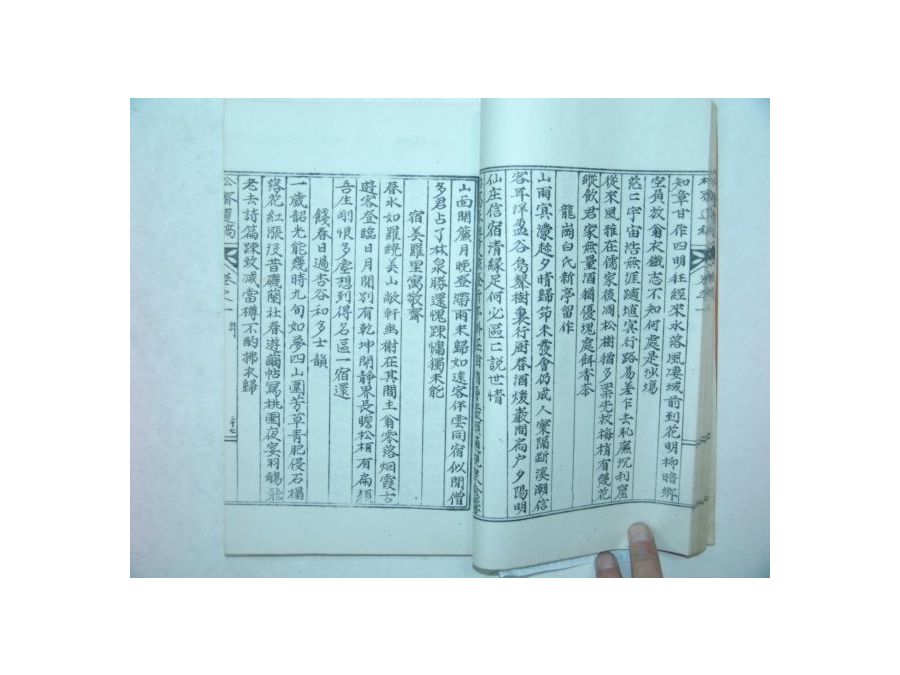 知章甘作四明狂經來水落風凄域前到花明柳暗鄉
空負故翁衣鐵志不知何處是沙場
茫茫宇宙浩無涯擿埴冥行路易差乍去恥廉沉利窟
從來風雅在儒家後凋松樹猶多景先放梅梢有幾花
縱飲君家無量酒猶優塊處餌香茶
龍崗白氏新亭留作
山雨冥濛趁夕晴歸笻未發會仍成人寰隔斷溪潮信
客耳洋盈谷鳥聲樹裏行厨春酒煖巖間扃户夕陽明
仙庄信宿清緣足何必區區説世情
山南開簾月晚登帶雨来歸如遠客伴雲同宿似閒僧
多君占了林泉勝還愧踈慵獨未能
宿美羅里寓敬齋
春水如羅繞美山敞軒幽樹在其間主翁零落烟霞古
遊客登臨日月閒別有乾坤開靜界長瞻松栢有扁顔
吾生剛恨多虛想到得名區一宿還
餞春日過杏谷和多士韻
一歲韶光能幾時九旬如夢四山圍芳草青肥侵石榻
落花紅漲沒苔磯蘭社春遊繭帖寫桃園夜宴羽觴飛
老去詩篇踈致减當樽不酌拂衣歸
齋遺稿 卷之一 詩 二十七